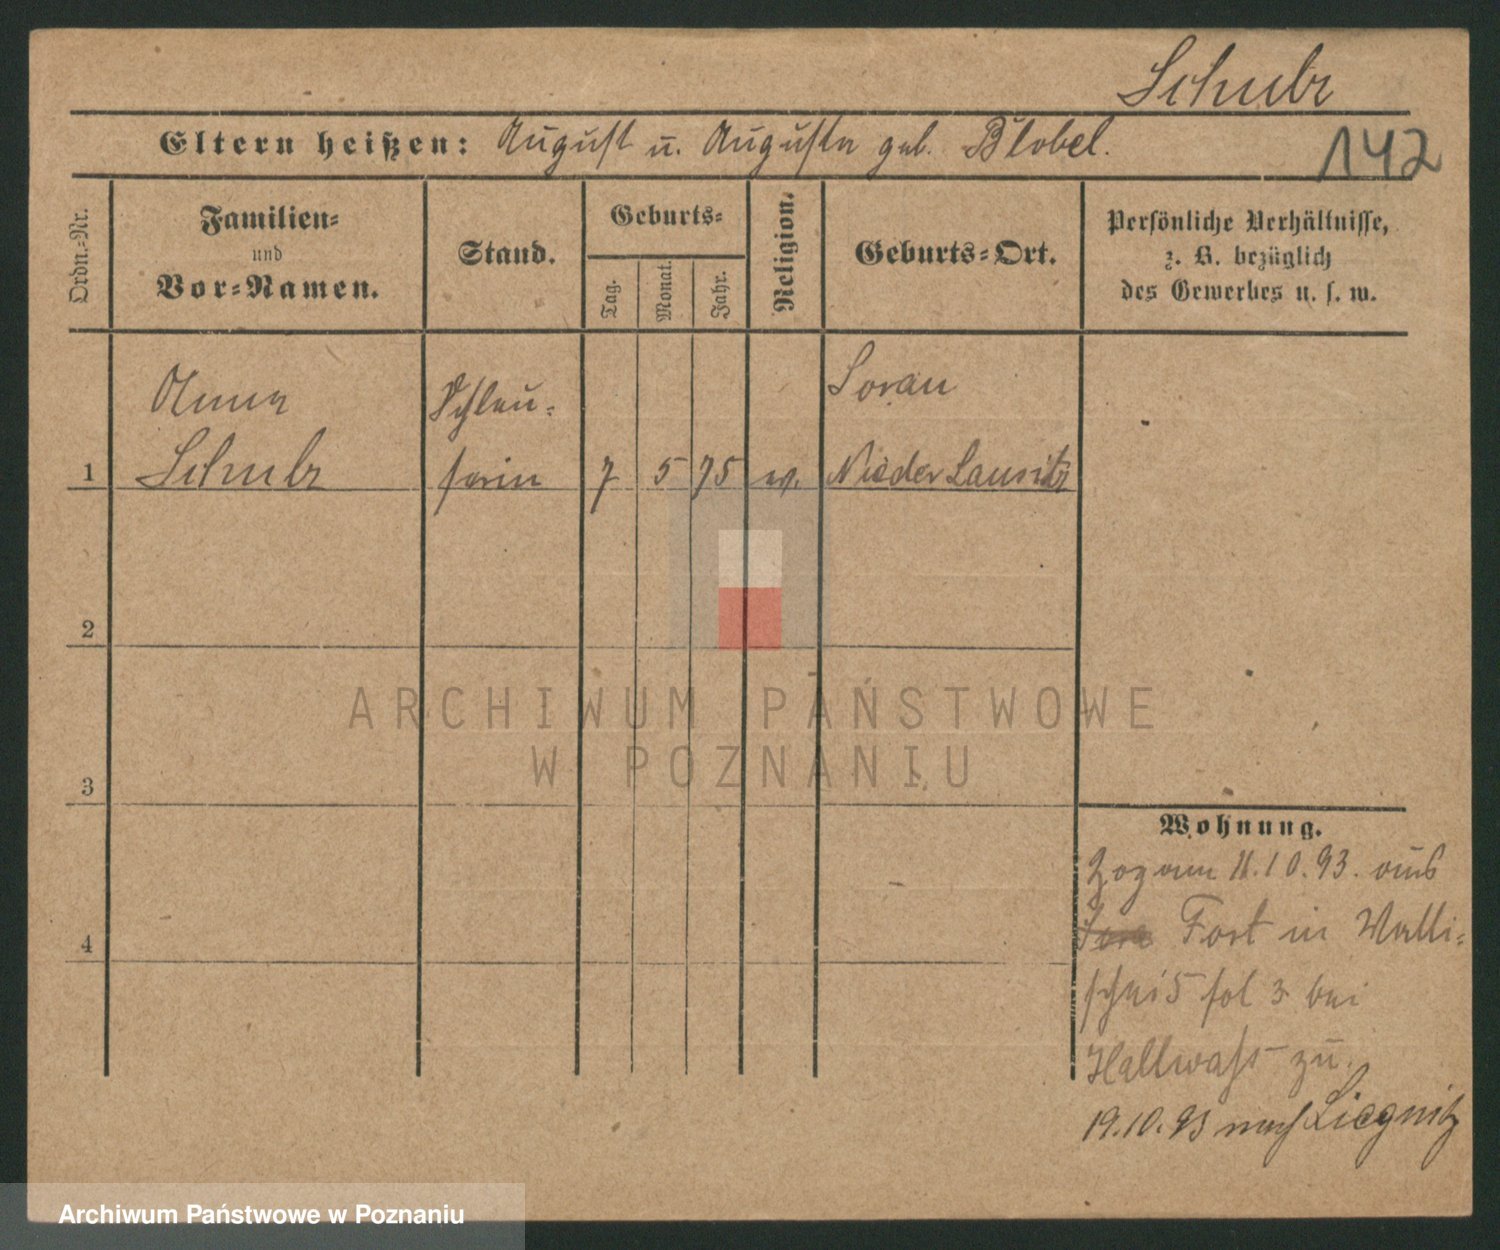 Schulz
Eltern heißen: August u. Augusta geb. Blobel.
142
Ordn.-Nr.
Familien-
und
Vor-Namen.
Stand.
Geburts-
Tag.
Monat.
Jahr.
Religion.
Geburts-Ort.
Persönliche Verhältnisse,
z. B. bezüglich
des Gewerbes u. s. w.
Anna
Schulz
1
7
5
75
ev.
Sorau
Nieder Lausitz
2
3
4
Wohnung.
Zog am 11.10.93. aus
Fort in Walli-
bei
Hallwaß zu.
19.10.93 nach Liegnitz
ARCHIWUM PAŃSTWOWE
W POZNANIU
Archiwum Państwowe w Poznaniu